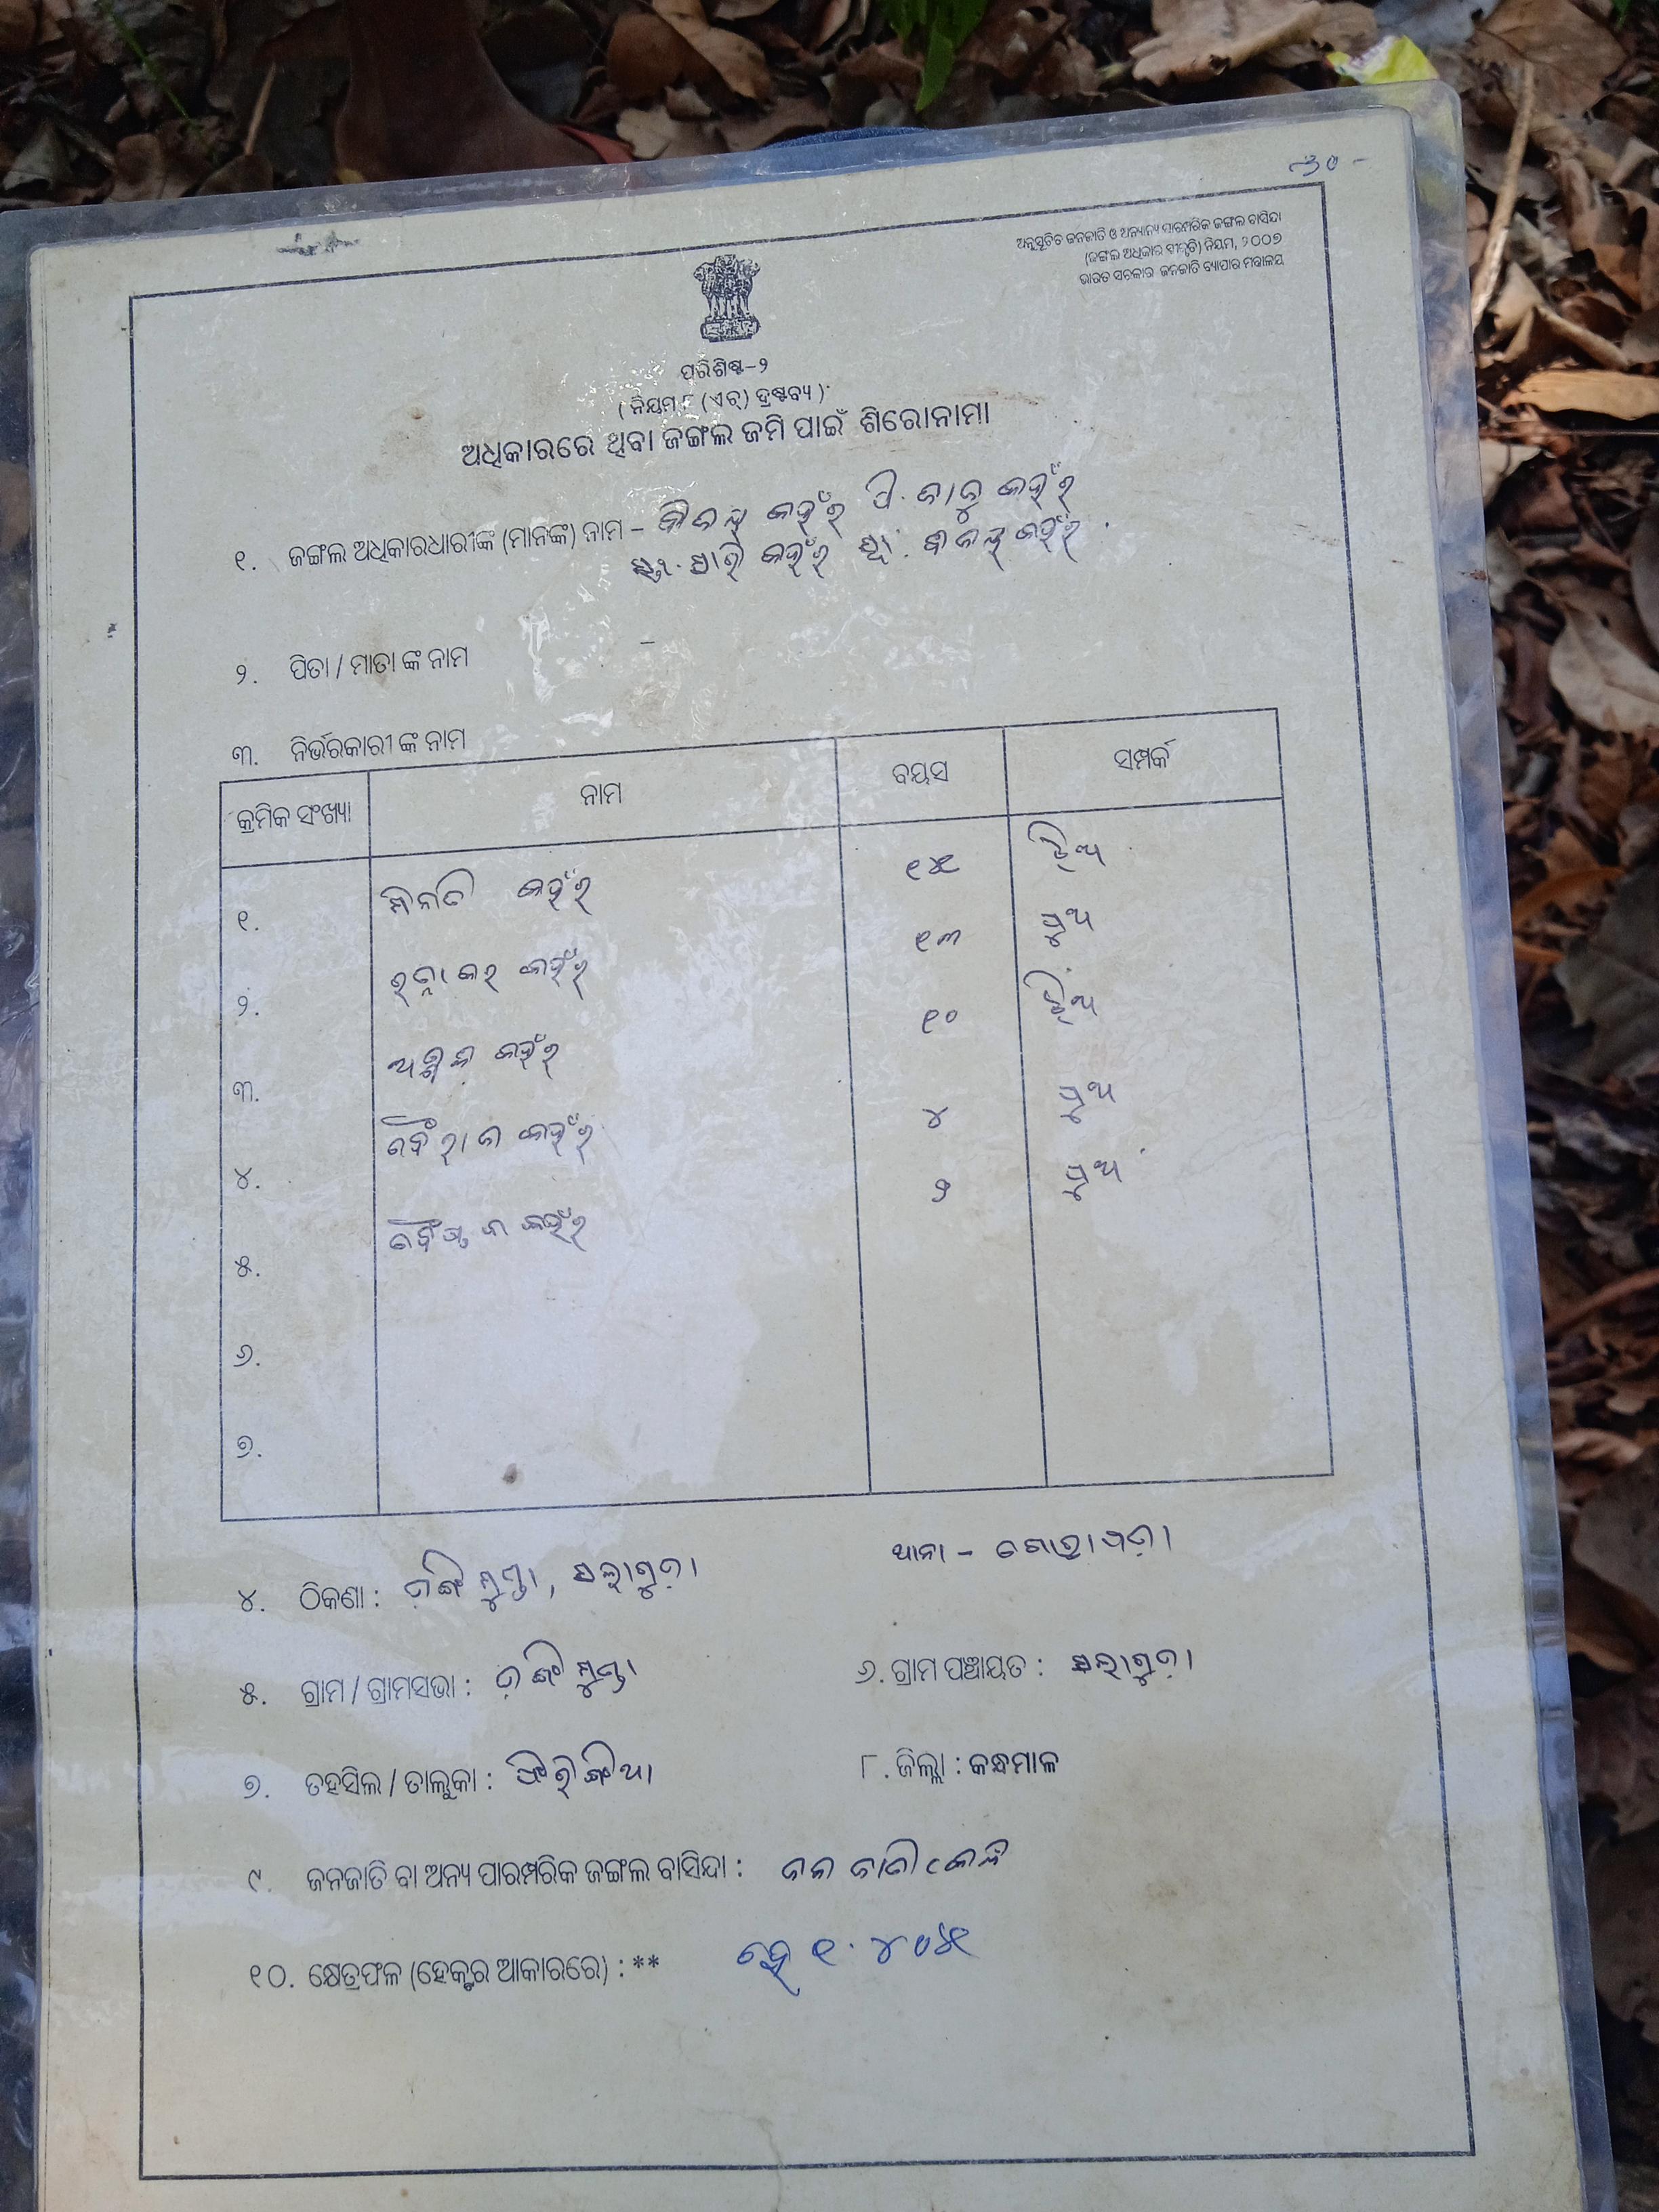 ୩୦ -
ଅନୁସୂଚିତ ଜନଜାତି ଓ ଅନ୍ୟାନ୍ୟ ପାରମ୍ପରିକ ଜଙ୍ଗଲ ବାସିନ୍ଦା
(ଜଙ୍ଗଲ ଅଧିକାର ସ୍ୱୀକୃତି) ନିୟମ, ୨୦୦୭
ଭାରତ ସରକାର ଜନଜାତି ବ୍ୟାପାର ମନ୍ତ୍ରାଳୟ
ପରିଶିଷ୍ଟ-୨
( ନିୟମ ୮ (ଏଚ୍) ଦ୍ରଷ୍ଟବ୍ୟ )
ଅଧିକାରରେ ଥିବା ଜଙ୍ଗଲ ଜମି ପାଇଁ ଶିରୋନାମା
୧. ଜଙ୍ଗଲ ଅଧିକାରଧାରୀଙ୍କ (ମାନଙ୍କ) ନାମ – କହଁର ପି. କହଁର
କହଁର ସ୍ୱା. କହଁର
୨. ପିତା / ମାତା ଙ୍କ ନାମ –
୩. ନିର୍ଭରକାରୀ ଙ୍କ ନାମ
କ୍ରମିକ ସଂଖ୍ୟା ନାମ ବୟସ ସମ୍ପର୍କ
୧. ମିନତି କହଁର ୧୫ ଝିଅ
୨. ରତ୍ନାକର କହଁର ୧୩ ପୁଅ
୩. କହଁର ୧୦ ଝିଅ
୪. କହଁର ୪ ପୁଅ
୫. କହଁର ୨ ପୁଅ
୬.
୭.
୪. ଠିକଣା : ଡ଼ିଙ୍ଗିମୁଣ୍ଡା, ସଲାଗୁଡ଼ା ଥାନା –
୫. ଗ୍ରାମ / ଗ୍ରାମସଭା : ଡ଼ିଙ୍ଗିମୁଣ୍ଡା ୬. ଗ୍ରାମ ପଞ୍ଚାୟତ : ସଲାଗୁଡ଼ା
୭. ତହସିଲ / ତାଲୁକା : ଫିରିଙ୍ଗିଆ ୮. ଜିଲ୍ଲା : କନ୍ଧମାଳ
୯. ଜନଜାତି ବା ଅନ୍ୟ ପାରମ୍ପରିକ ଜଙ୍ଗଲ ବାସିନ୍ଦା : ଜନଜାତି
୧୦. କ୍ଷେତ୍ରଫଳ (ହେକ୍ଟର ଆକାରରେ) : ** ହେ ୧.୪୦୫